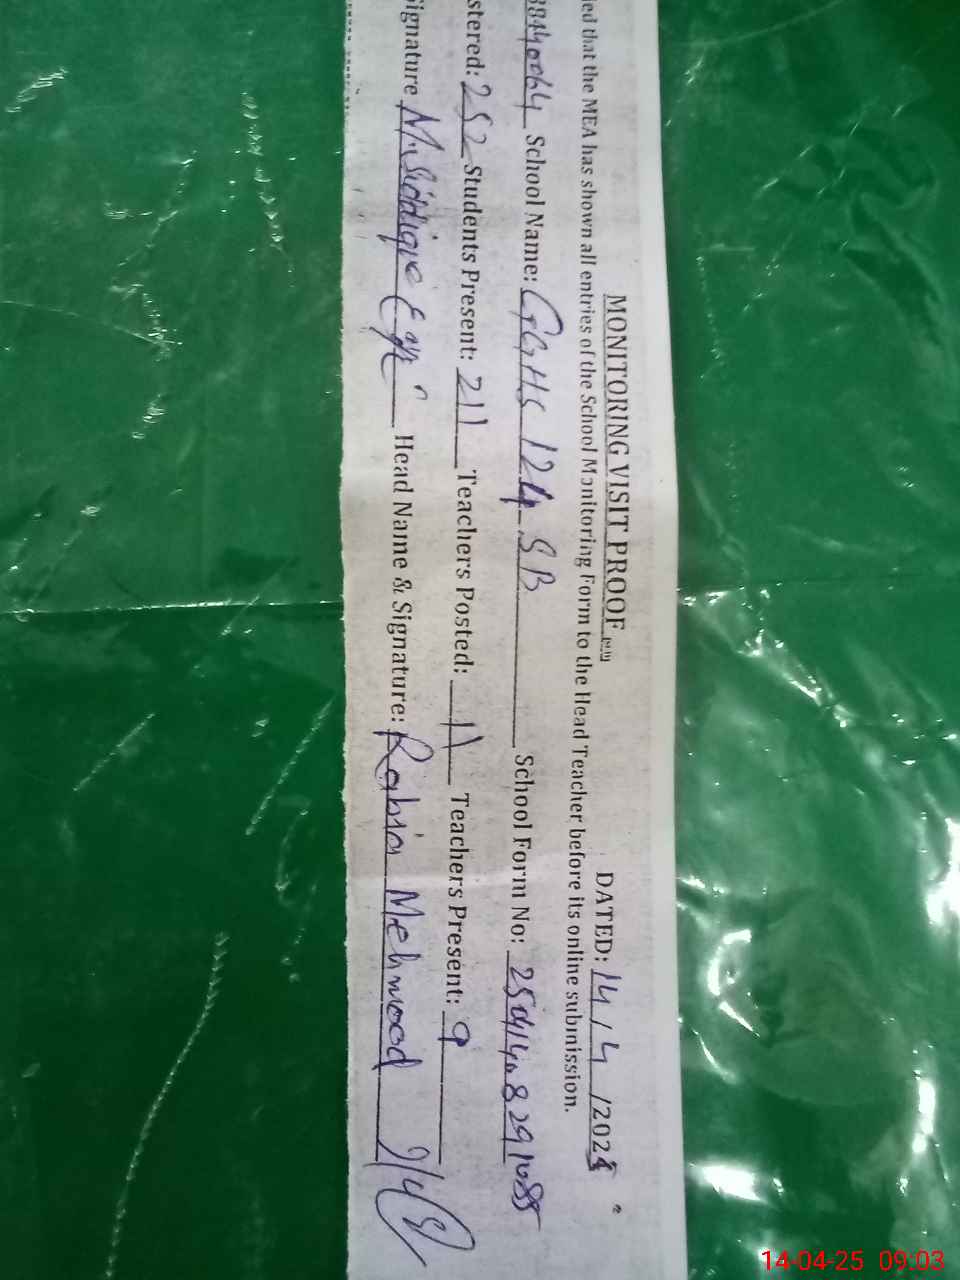 MONITORING VISIT PROOF DATED: 14/4/2025
ied that the MEA has shown all entries of the School Monitoring Form to the Head Teacher before its online submission.
38440064 School Name: GGHS 124 SB School Form No:
stered: 252 Students Present: 211 Teachers Posted: 11 Teachers Present: 9
Signature M.Siddique Head Name & Signature: Rabia Mehmood
14-04-25 09:03